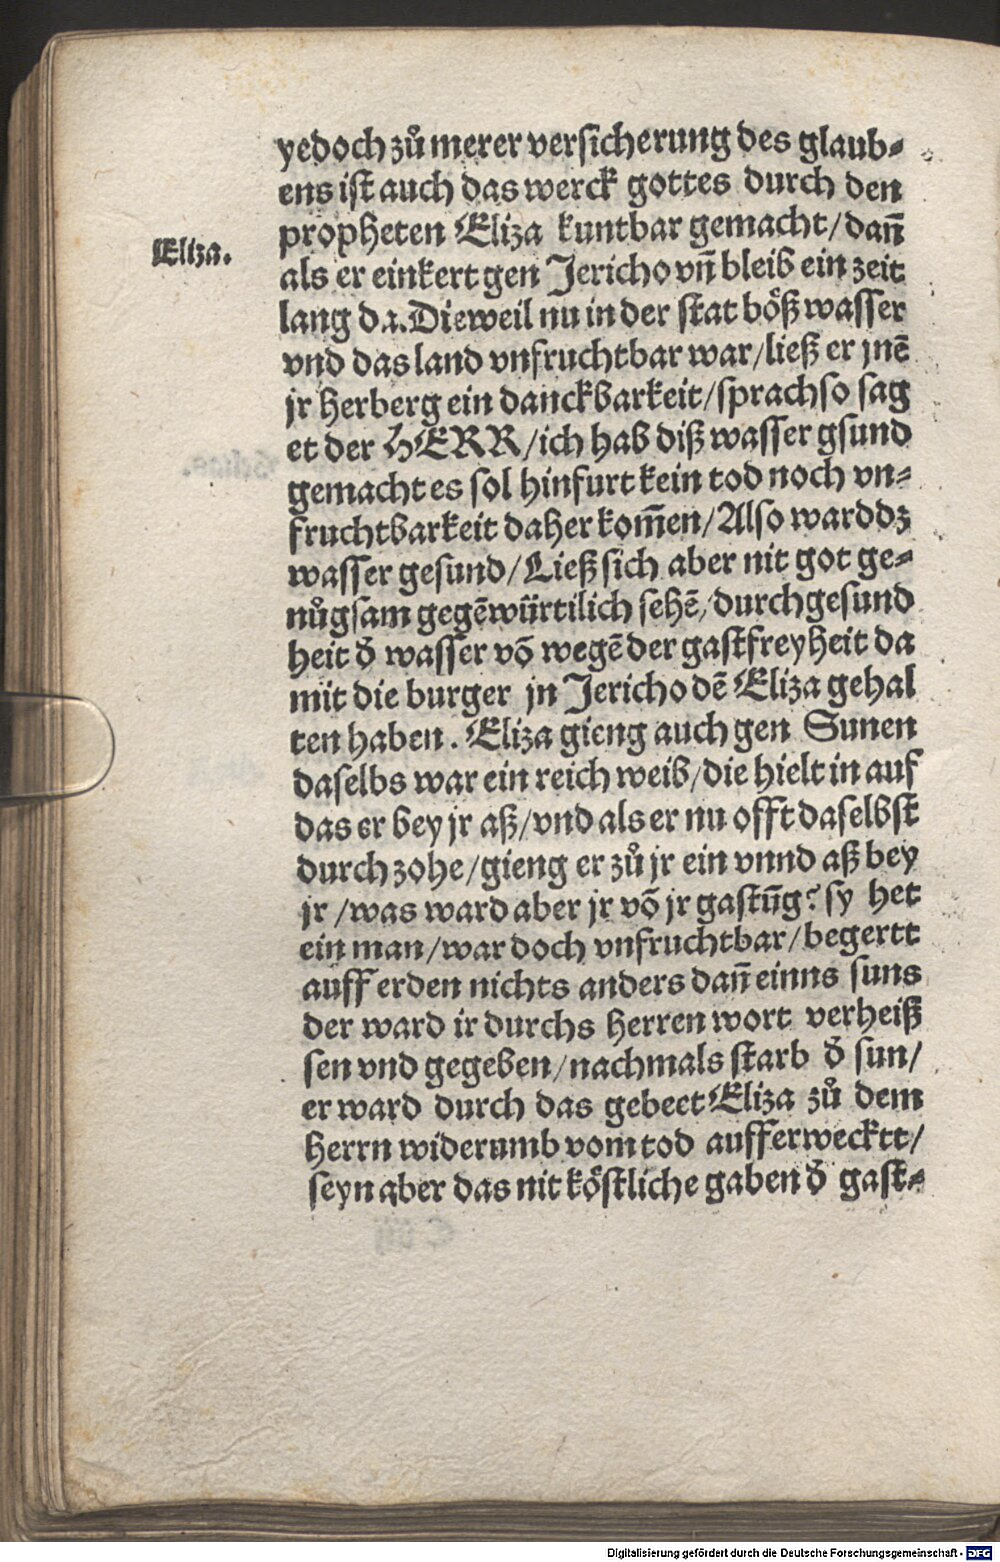 yedoch zů merer versicherung des glaub⸗
ens ist auch das werck gottes durch den
propheten Eliza kuntbar gemacht/ dañ
Eliza.
als er einkert gen Jericho vñ bleib ein zeit
lang da. Dieweil nu in der stat bôß wasser
vnd das land vnfruchtbar war/ ließ er jnē
jr Herberg ein danckbarkeit/ sprach so sag
et der HERR/ ich hab diß wasser gsund
gemacht es sol hinfurt kein tod noch vn⸗
fruchtbarkeit daher kom̃en/ Also ward dz
wasser gesund/ Ließ sich aber nit got ge⸗
nůgsam gegēwürtilich sehē/ durch gesund
heit d̕ wasser võ wegē der gastfreyheit da
mit die burger jn Jericho dē Eliza gehal
ten haben. Eliza gieng auch gen Sunen
daselbs war ein reich weib/ die hielt in auf
das er bey jr aß/ vnd als er nu offt daselbst
durch zohe/ gieng er zů jr ein vnnd aß bey
jr/ was ward aber jr võ jr gastũg? sy het
ein man/ war doch vnfruchtbar/ begertt
auff erden nichts anders dañ einns suns
der ward ir durchs Herren wort verheiß
sen vnd gegeben/ nachmals starb d̕ sun/
er ward durch das gebeet Eliza zů dem
Herrn widerumb vom tod aufferwecktt/
seyn aber das nit kôstliche gaben d̕ gast⸗
Digitalisierung gefördert durch die Deutsche Forschungsgemeinschaft - DFG